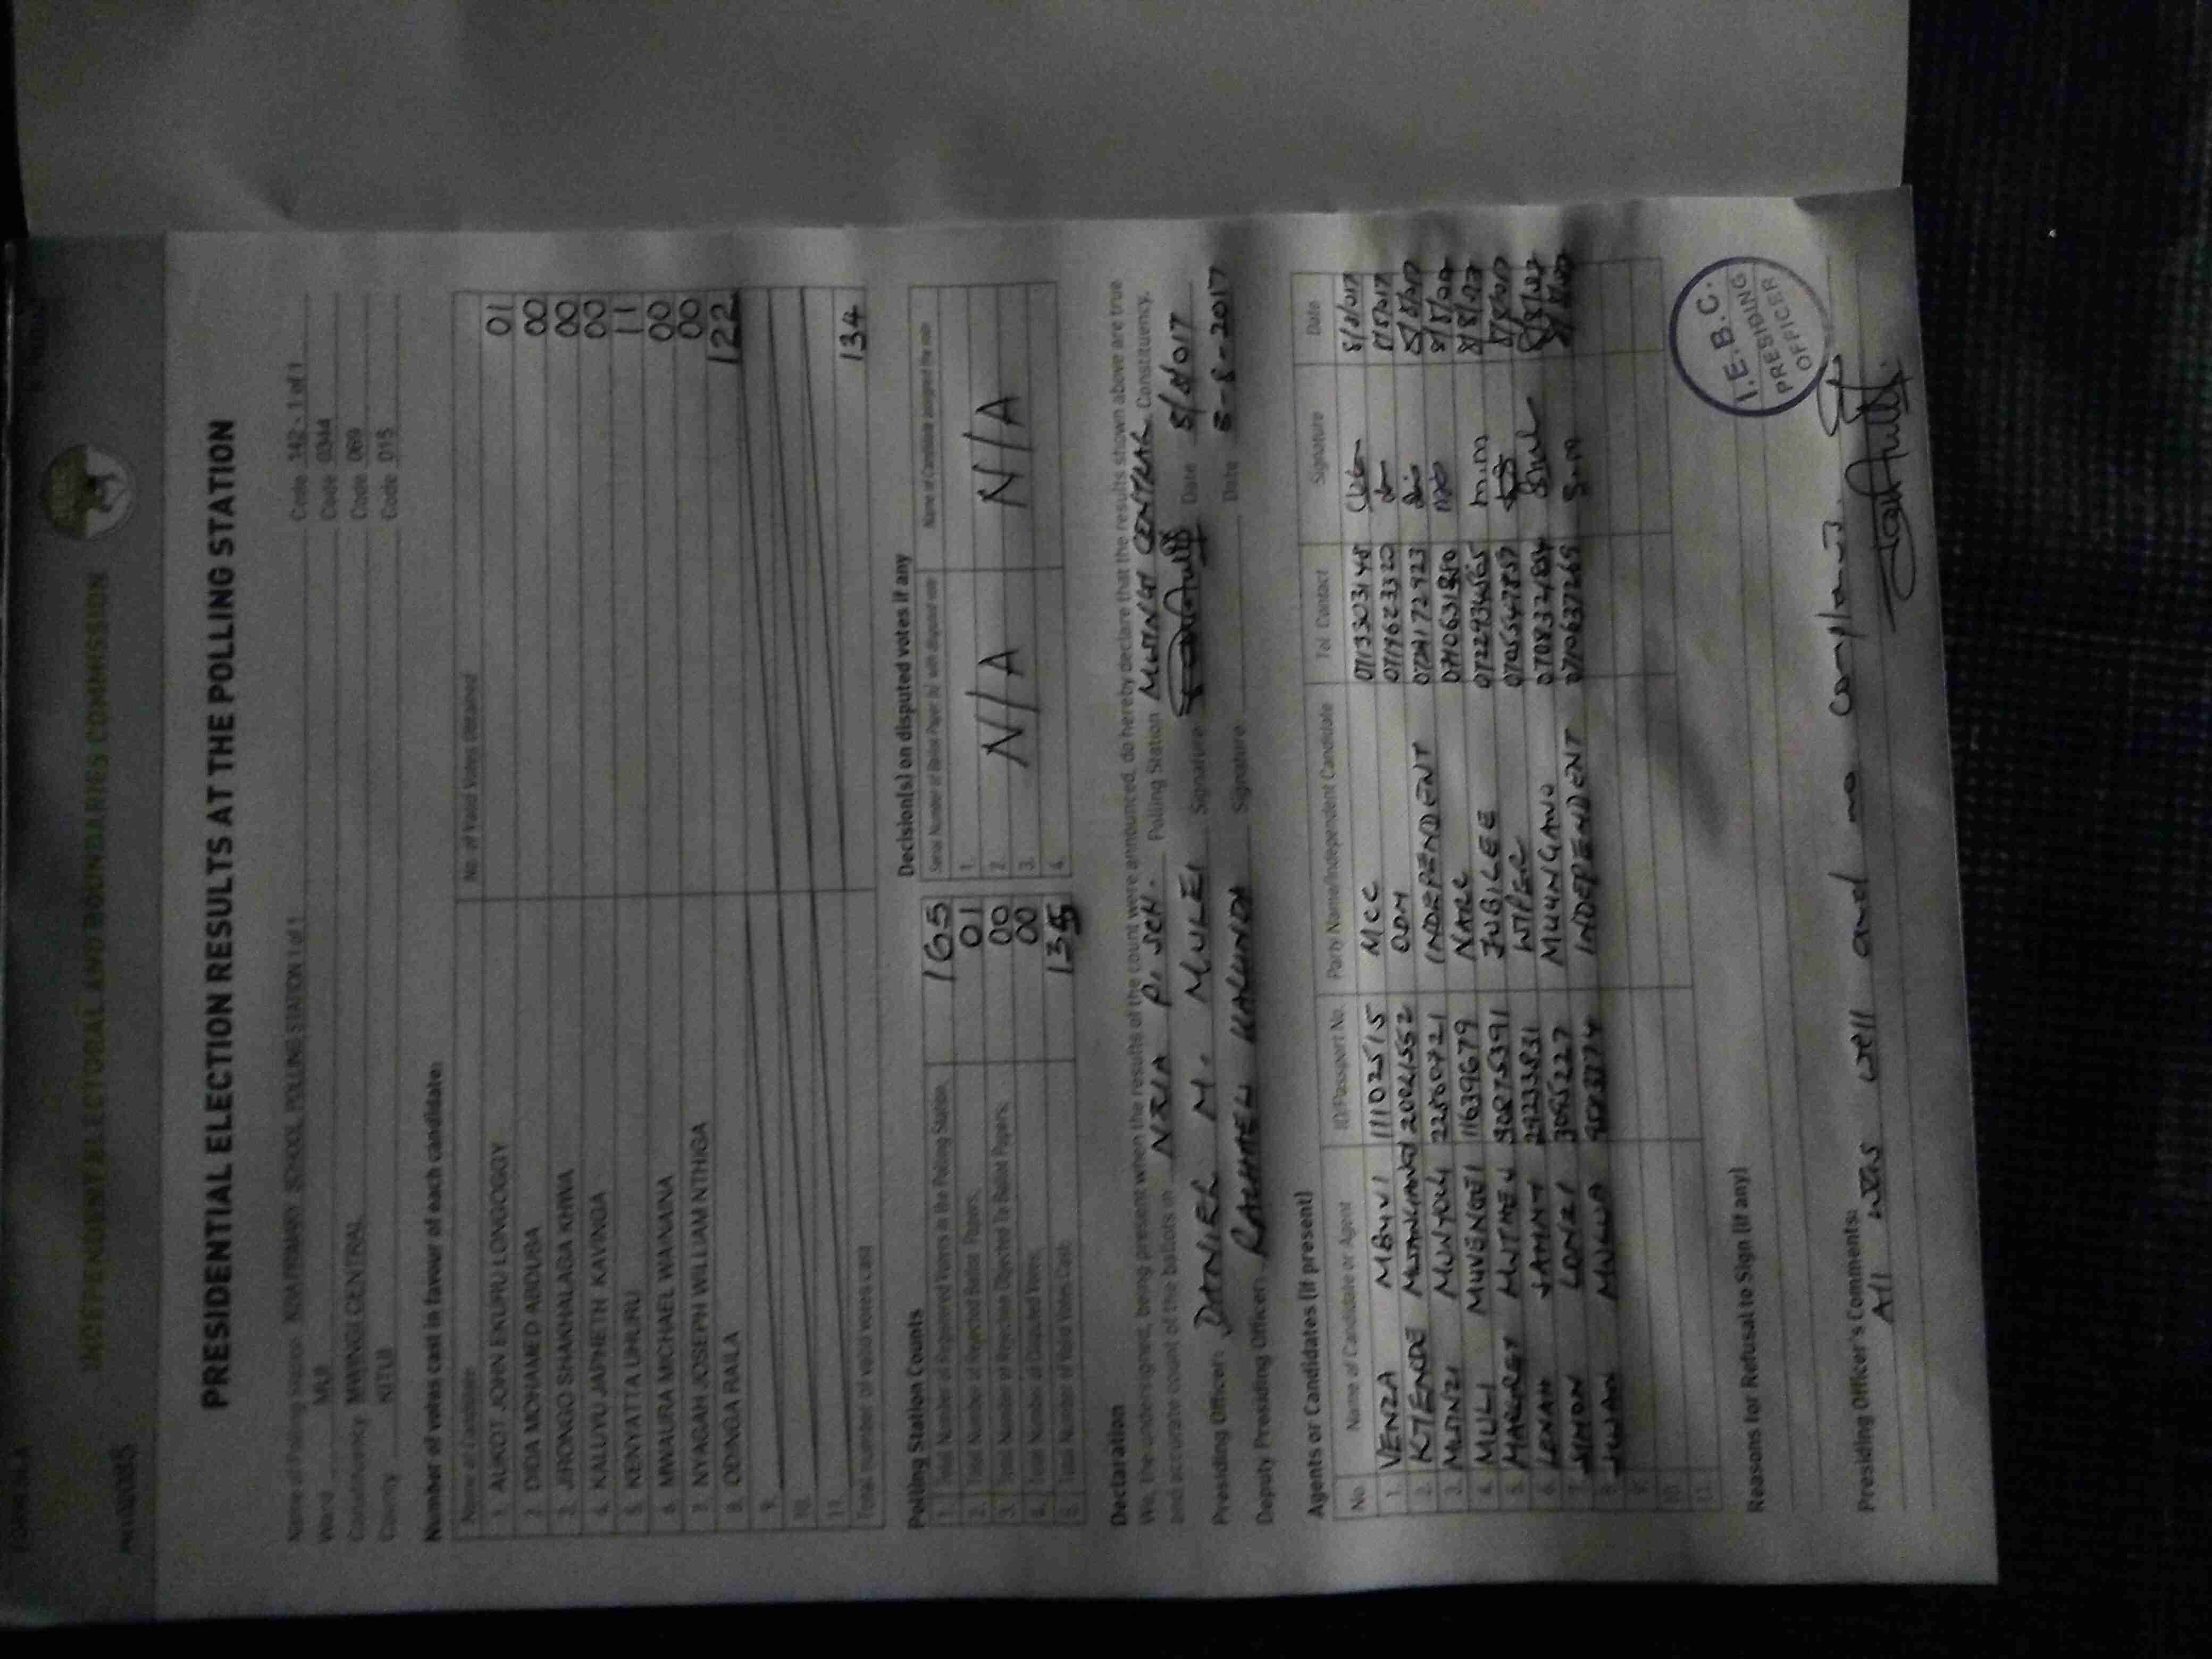 FORM 34A
INDEPENDENT ELECTORAL AND BOUNDARIES COMMISSION
PRESIDENTIAL ELECTION RESULTS AT THE POLLING STATION
Name of Polling Station PRIMARY SCHOOL POLLING STATION 1 of 1 Code 142 - 1 of 1
Ward MUI Code 0344
Constituency MWINGI CENTRAL Code 069
County KITUI Code 015
Number of votes cast in favour of each candidate:
Name of Candidate No. of Valid Votes Obtained
1. AUKOT JOHN EKURU LONGOGGY 01
2. DIDA MOHAMED ABDUBA 00
3. JIRONGO SHAKHALAGA KHWA 00
4. KALUYU JAPHETH KAVINGA 00
5. KENYATTA UHURU 11
6. MWAURA MICHAEL WAINAINA 00
7. NYAGAH JOSEPH WILLIAM NTHIGA 00
8. ODINGA RAILA 122
9.
10.
11.
Total number of valid votes cast 134
Polling Station Counts
1. Total Number of Registered Voters in the Polling Station 165
2. Total Number of Rejected Ballot Papers 01
3. Total Number of Rejection Objected To Ballot Papers 00
4. Total Number of Disputed Votes 00
5. Total Number of Valid Votes Cast 135
Decision(s) on disputed votes if any
Serial Number of Ballot Paper (s) with disputed vote Name of Candidate assigned the vote
1.
2. N/A N/A
3.
4.
Declaration
We, the undersigned, being present when the results of the count were announced, do hereby declare that the results shown above are true
and accurate count of the ballots in P. SCH. Polling Station MWINGI CENTRAL Constituency.
Presiding Officer DANIEL M. MULEI Signature Date 8/8/017
Deputy Presiding Officer RACHAEL KALUNDA Signature Date 8-8-2017
Agents or Candidates (if present)
No. Name of Candidate or Agent ID/Passport No. Party Name/Independent Candidate Tel. Contact Signature Date
1. VENZA MBUVI 11102515 MCC 0713303148 8/8/017
2. MWANGANGI ODM 0719623320
3. MUNYOKI 22860721 INDEPENDENT
4. MULI MUVENGEI 11639679 NARC
5. MARGRET MUTHEU JUBILEE M.M
6. LENAH JAMMY 29233831 WIPER
7. SIMON MUUNGANO
8. INDEPENDENT 0710637269
9.
10.
11.
Reasons for Refusal to Sign (if any)
I.E.B.C.
PRESIDING
OFFICER
Presiding Officer's Comments:
All was well and no complains.